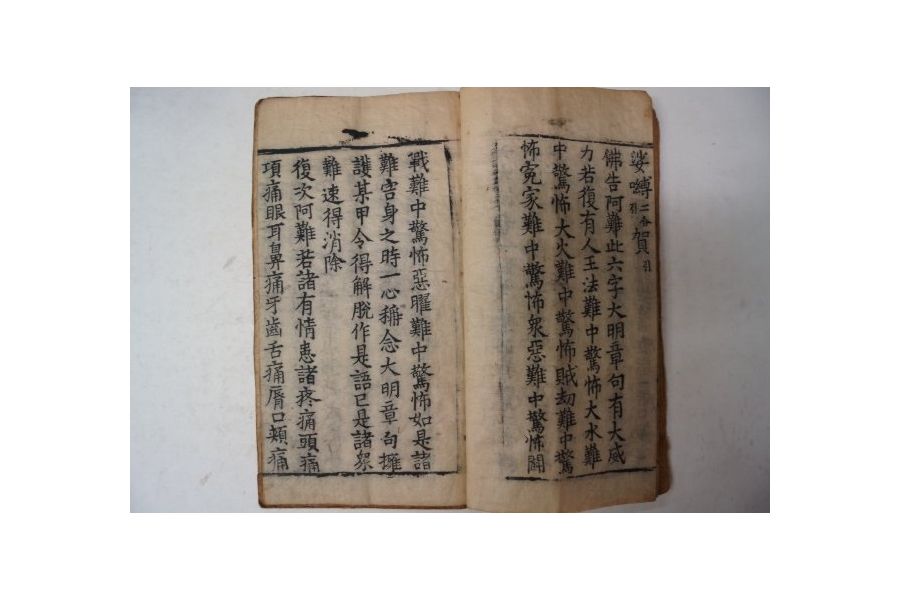 娑嚩二合引賀引
佛告阿難此六字大明章句有大威
力若復有人王法難中驚怖大水難
中驚怖大火難中驚怖賊劫難中驚
怖寃家難中驚怖衆惡難中驚怖鬪
戰難中驚怖惡曜難中驚怖如是諸
難害身之時一心稱念大明章句擁
護某甲令得解脫作是語已是諸衆
難速得消除
復次阿難若諸有情患諸疼痛頭痛
項痛眼耳鼻痛牙齒舌痛脣口頰痛